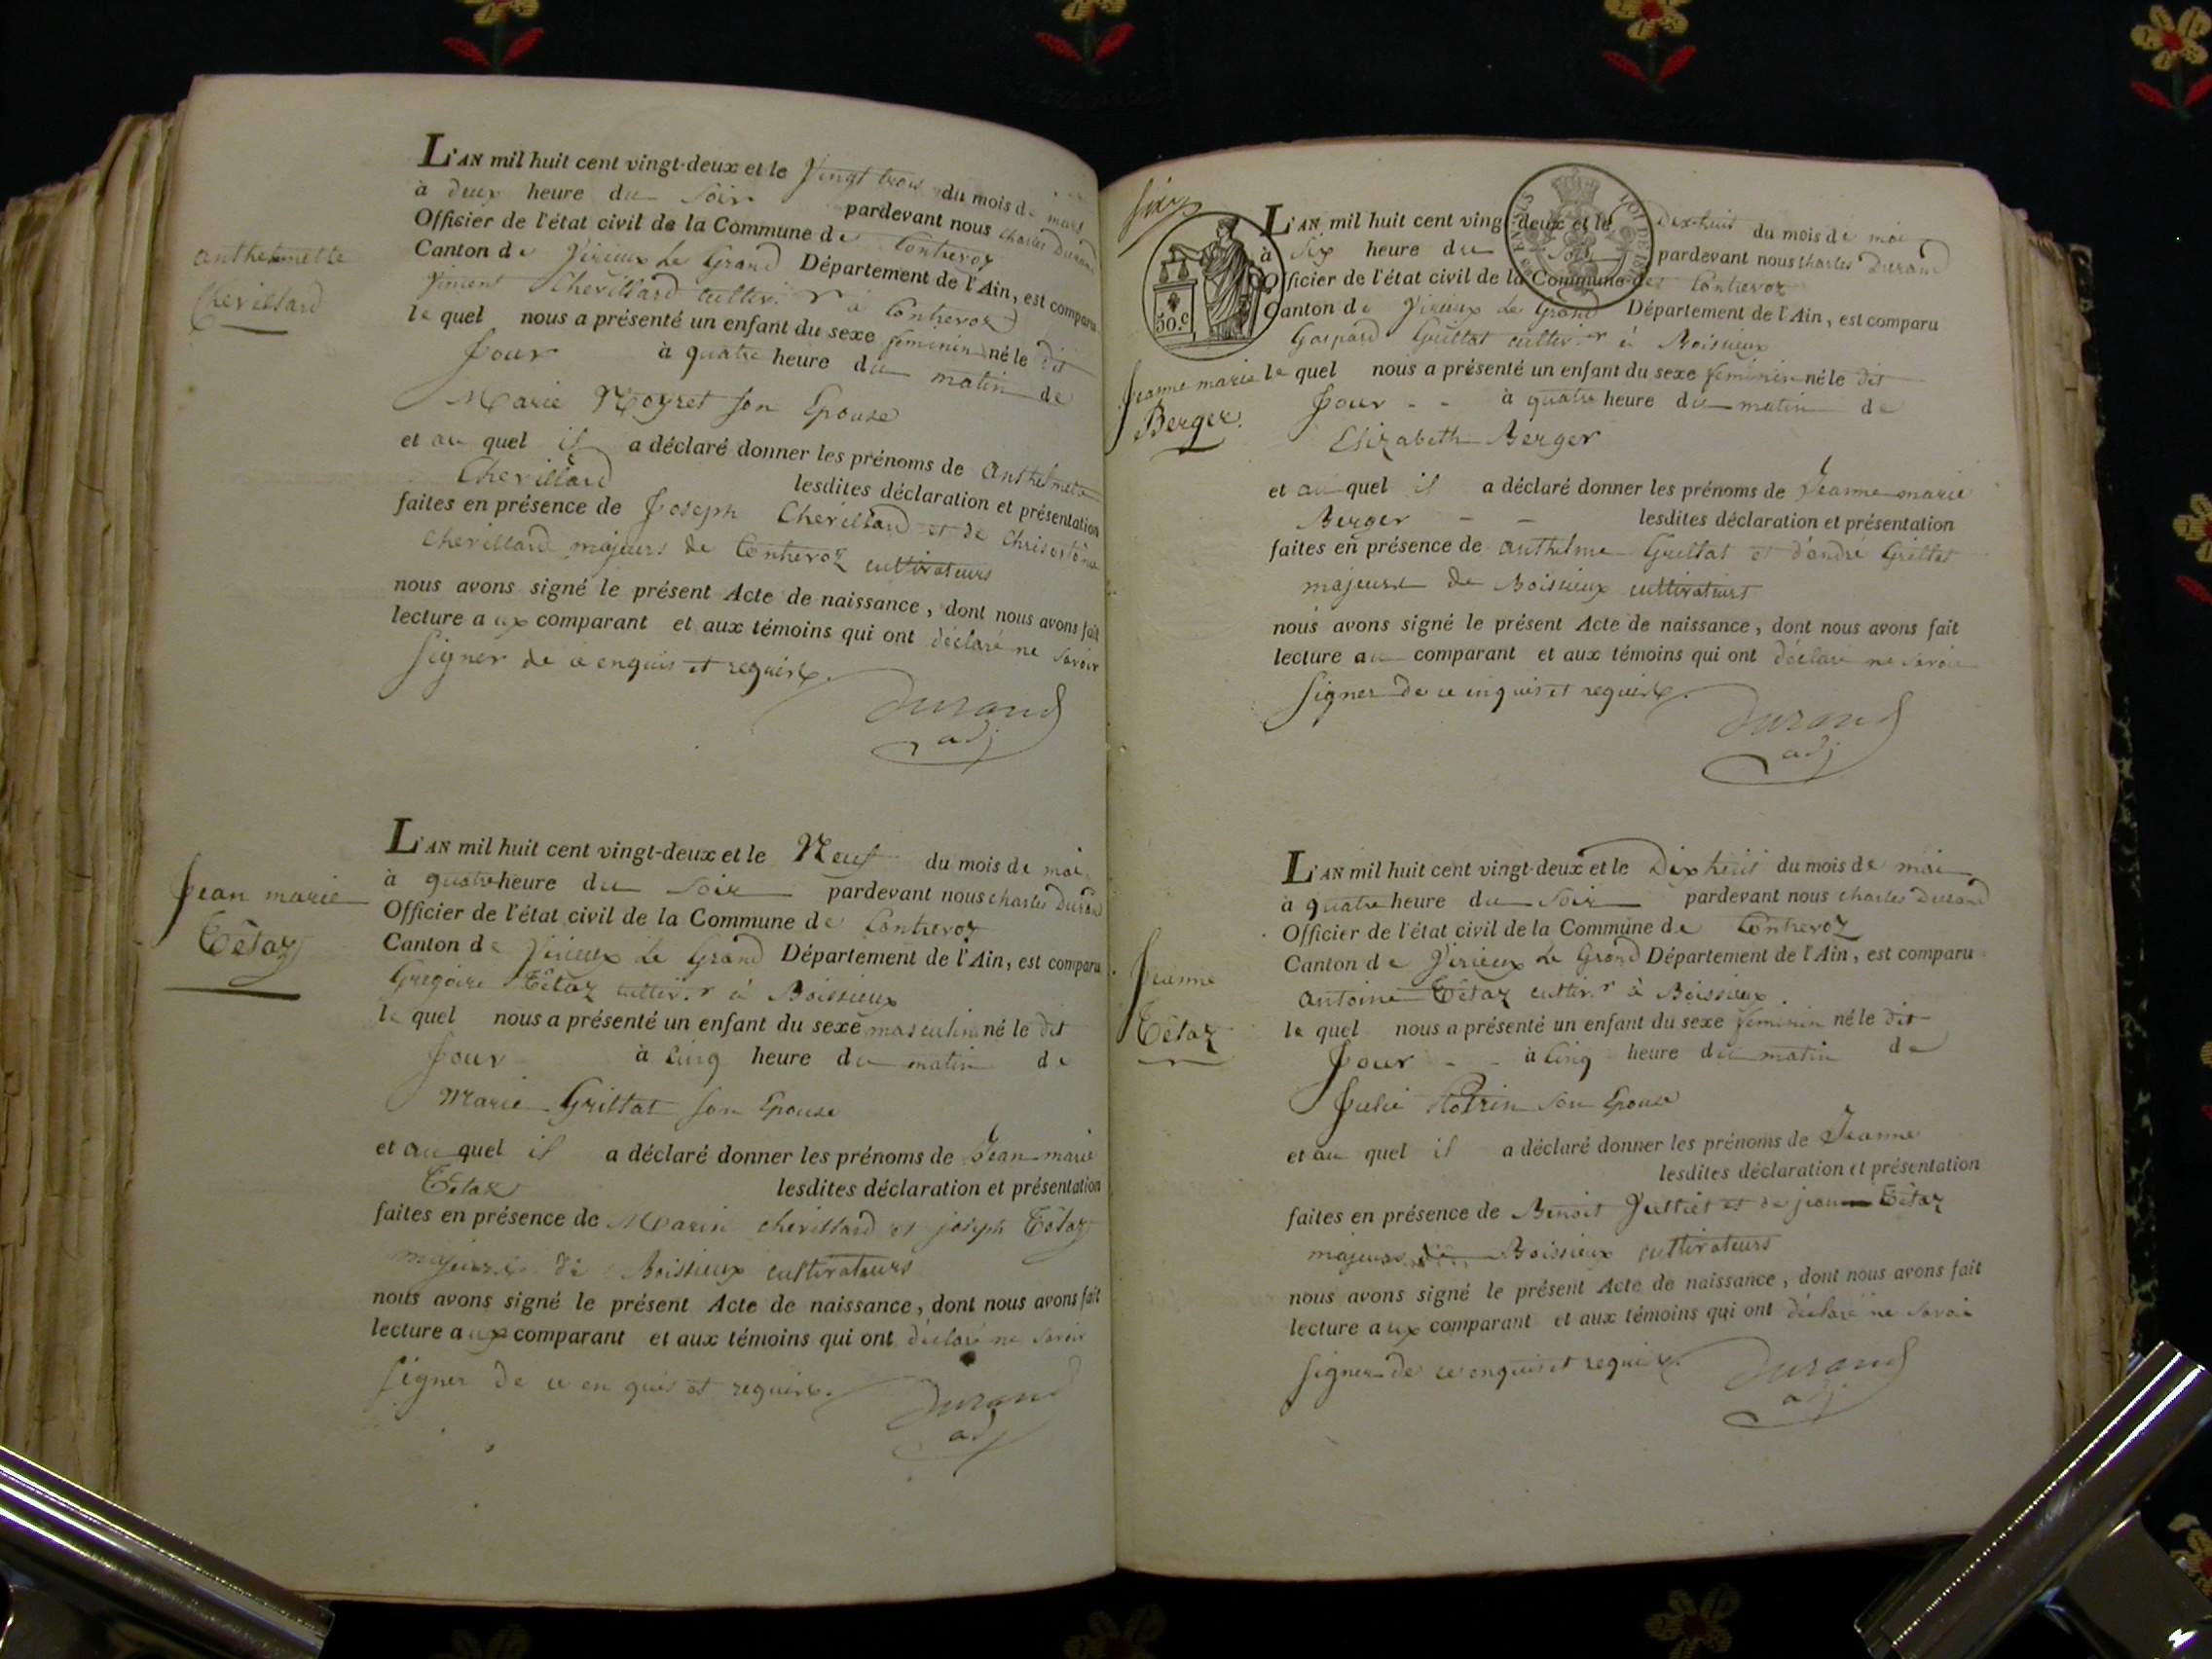 anthelmette
Chevillard
L'AN mil huit cent vingt-deux et le Vingt trois du mois de mars
à deux heure du soir pardevant nous Charles Durand
Officier de l'état civil de la Commune de Contrevoz
Canton de Virieux Le Grand Département de l'Ain, est comparu
Chevillard cultiv.r a Contrevoz
le quel nous a présenté un enfant du sexe feminin né le dit
Jour à quatre heure du matin de
Marie Moyret son Epouse
et au quel il a déclaré donner les prénoms de Anthelmette
Chevillard lesdites déclaration et présentation
faites en présence de Joseph Chevillard et de Chrisostôme
Chevillard majeurs de Contrevoz cultivateurs
nous avons signé le présent Acte de naissance, dont nous avons fait
lecture aux comparant et aux témoins qui ont déclaré ne savoir
signer de ce enquis et requis.
Durand
adj
Jean marie
Tétaz
L'AN mil huit cent vingt-deux et le Neuf du mois de mai
à quatre heure du soir pardevant nous charles Durand
Officier de l'état civil de la Commune de Contrevoz
Canton de Virieux Le Grand Département de l'Ain, est comparu
Gregoire Tétaz cultiv.r à Boissieux
le quel nous a présenté un enfant du sexe masculin né le dit
Jour à cinq heure du matin de
Marie Grillat son Epouse
et au quel il a déclaré donner les prénoms de Jean marie
Tétaz lesdites déclaration et présentation
faites en présence de Marin chevillard et joseph Tétaz
majeurs de Boissieux cultivateurs
nous avons signé le présent Acte de naissance, dont nous avons fait
lecture aux comparant et aux témoins qui ont déclaré ne savoir
signer de ce en quis et requis.
Durand
adj
50.c
Jeanne marie
Berger
L'AN mil huit cent vingt-deux et le Dix-huit du mois de mai
à six heure du soir pardevant nous charles Durand
Officier de l'état civil de la Commune de Contrevoz
Canton de Virieux Le Grand Département de l'Ain, est comparu
Gaspard Grillat cultiv.r à Boissieux
le quel nous a présenté un enfant du sexe feminin né le dit
Jour - - à quatre heure du matin de
Elizabeth Berger
et au quel il a déclaré donner les prénoms de Jeanne marie
Berger - - lesdites déclaration et présentation
faites en présence de anthelme Grillat et d'andré Grillat
majeurs de Boissieux cultivateurs
nous avons signé le présent Acte de naissance, dont nous avons fait
lecture au comparant et aux témoins qui ont déclaré ne savoir
signer de ce enquis et requis.
Durand
adj
Jeanne
Tétaz
L'AN mil huit cent vingt-deux et le Dix huit du mois de mai
à quatre heure du soir pardevant nous charles Durand
Officier de l'état civil de la Commune de Contrevoz
Canton de Virieux Le Grand Département de l'Ain, est comparu
antoine Tétaz cultiv.r à Boissieux
le quel nous a présenté un enfant du sexe feminin né le dit
Jour - - à cinq heure du matin de
Julie son Epouse
et au quel il a déclaré donner les prénoms de Jeanne
lesdites déclaration et présentation
faites en présence de Benoit Julliet et de jean Tétaz
majeurs de Boissieux cultivateurs
nous avons signé le présent Acte de naissance, dont nous avons fait
lecture aux comparant et aux témoins qui ont déclaré ne savoir
signer de ce enquis et requis.
Durand
adj